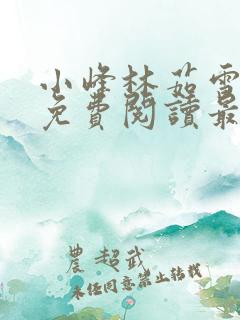 小峰林茹雪
免費閱讀最
農 超武
未经同意禁止转载